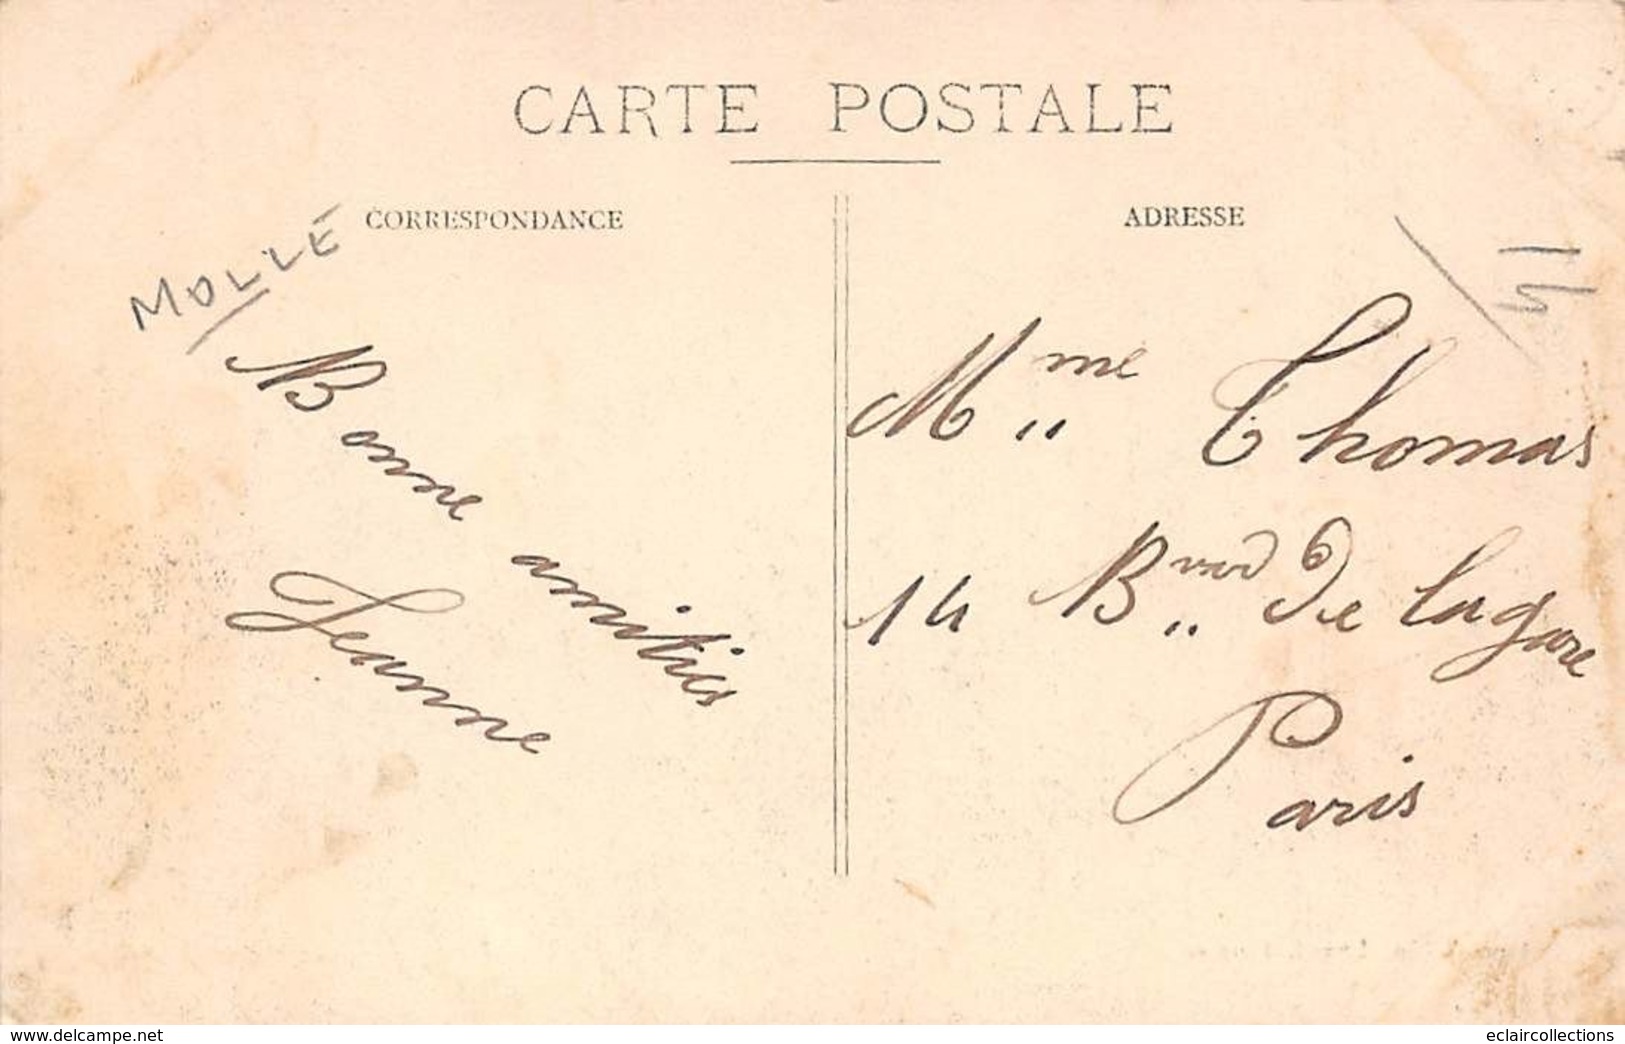 CARTE POSTALE
CORRESPONDANCE
ADRESSE
MOLLÉ
14
Bonne amitiés
Jeanne
Mme Thomas
14 Bvard de lagare
Paris
www.delcampe.net
eclaircollections